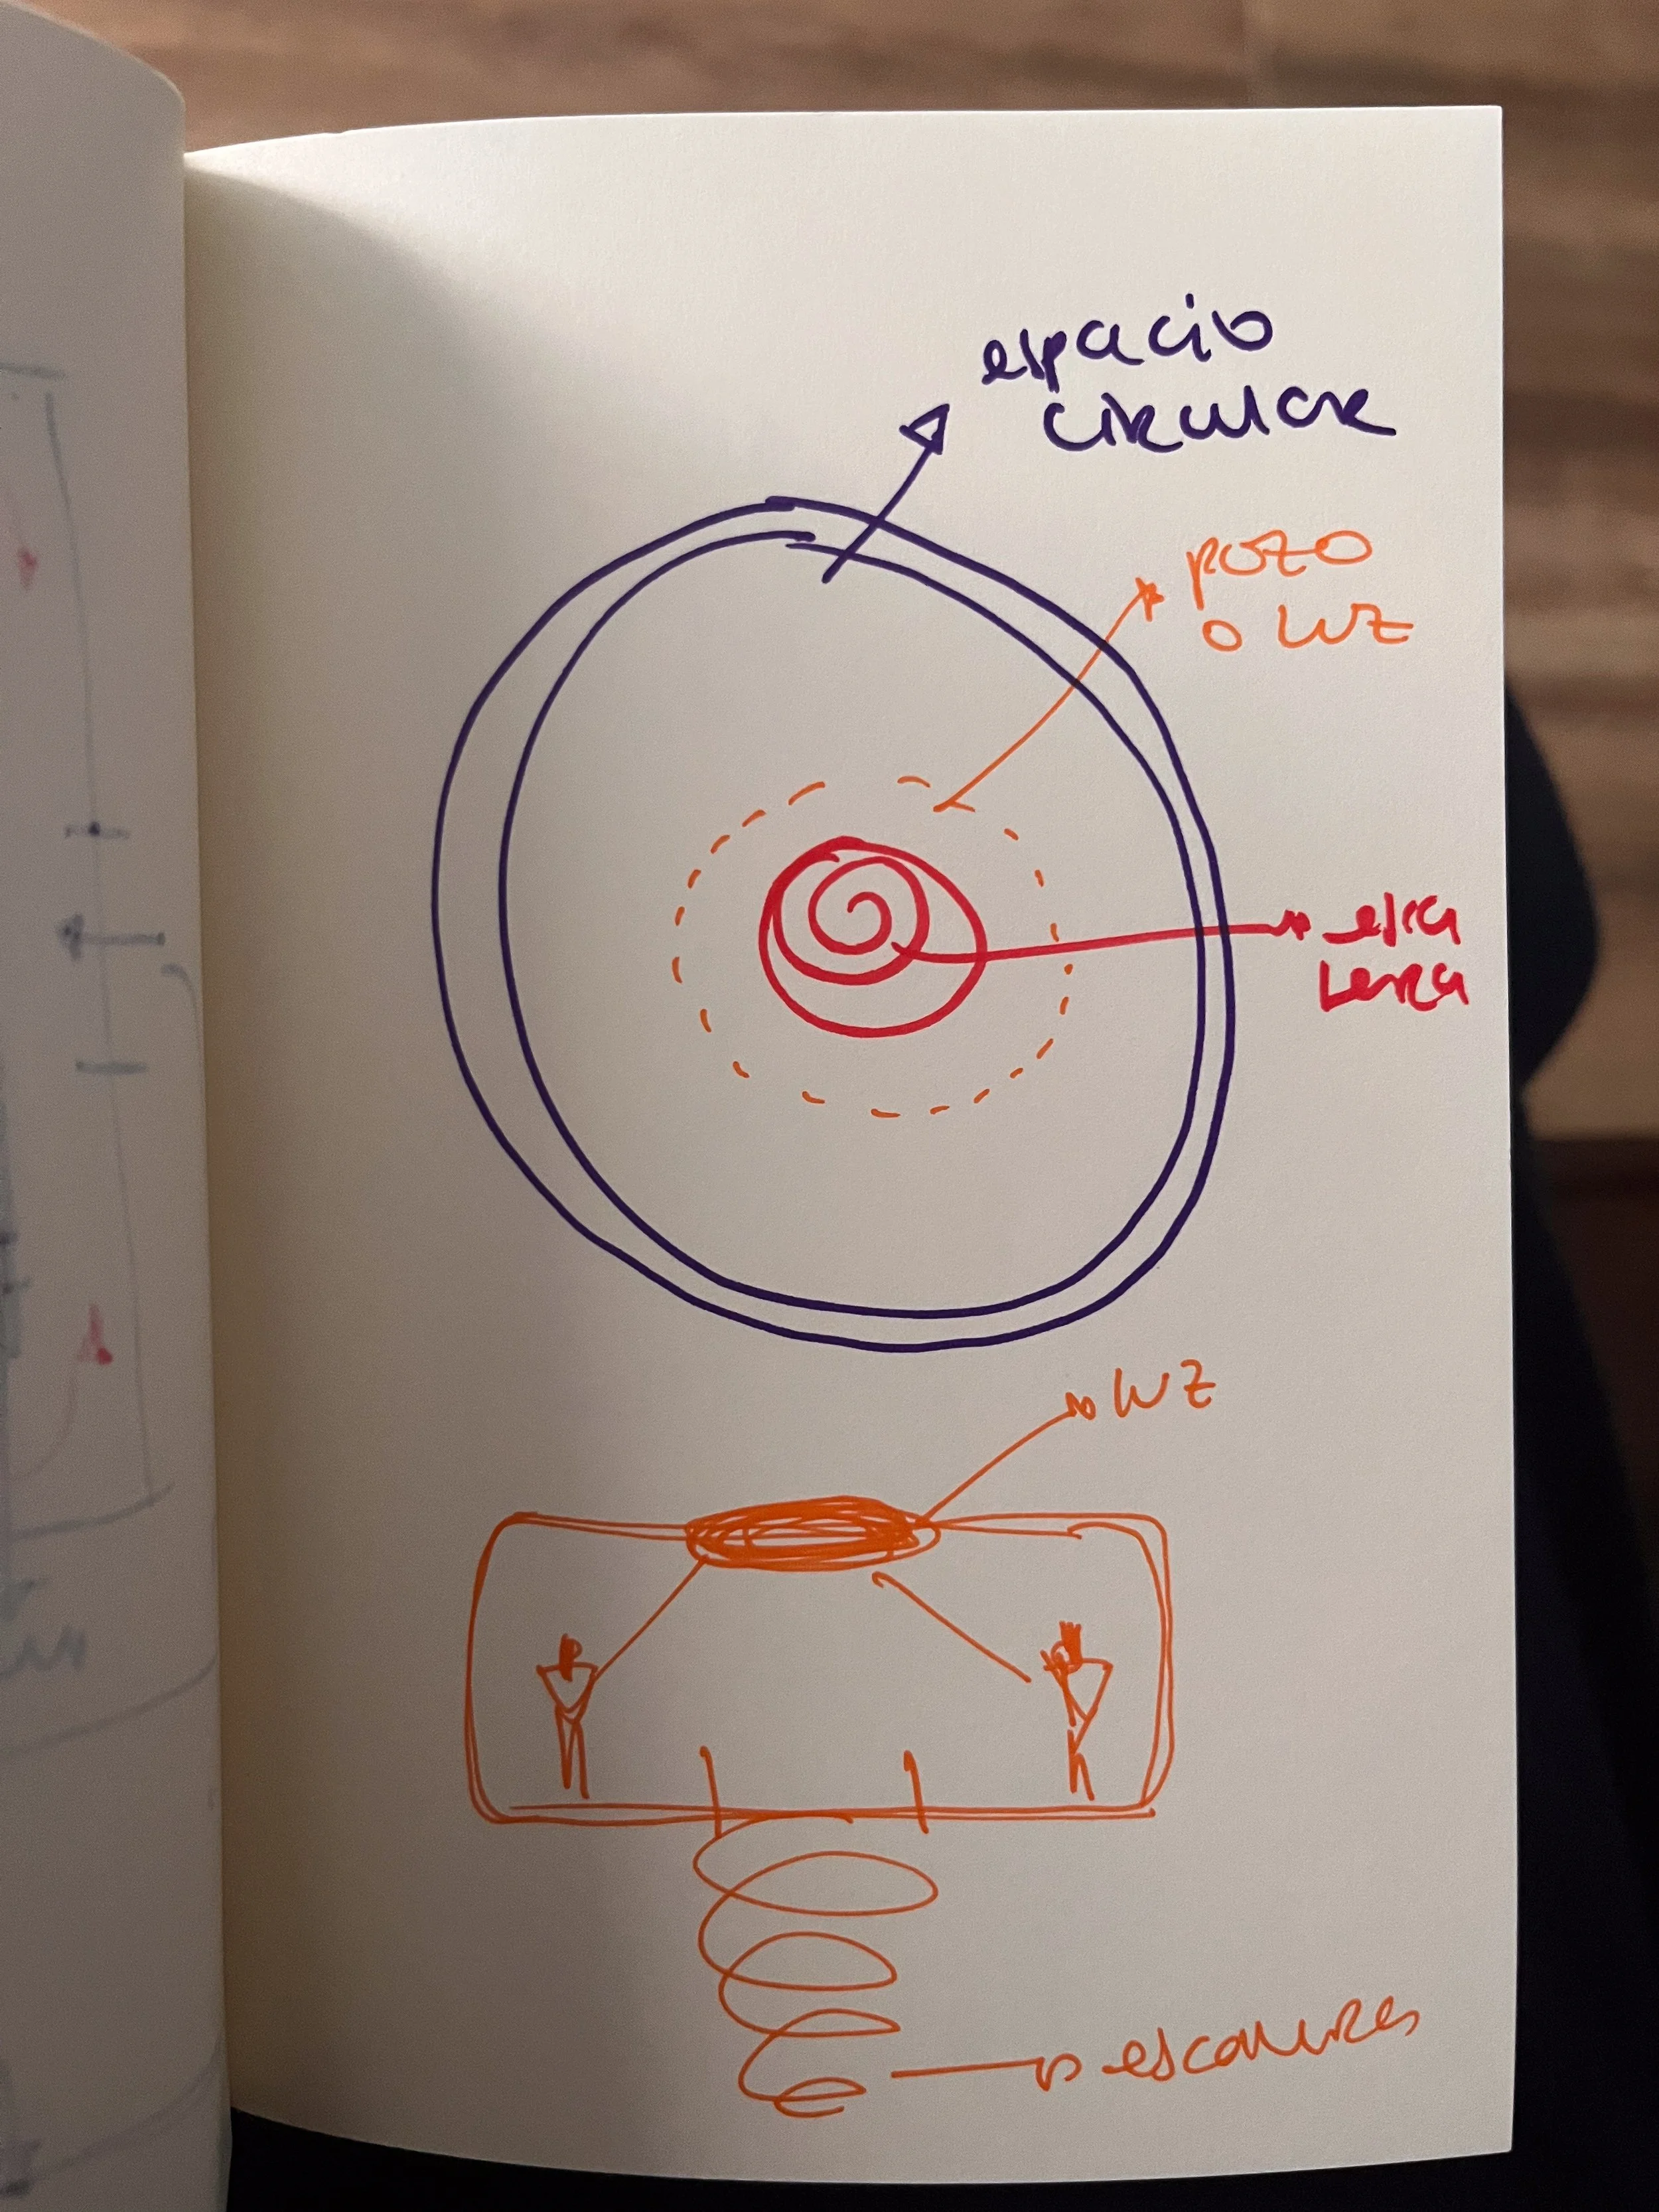 espacio
circular
pozo
o luz
esca
lera
luz
escaleras